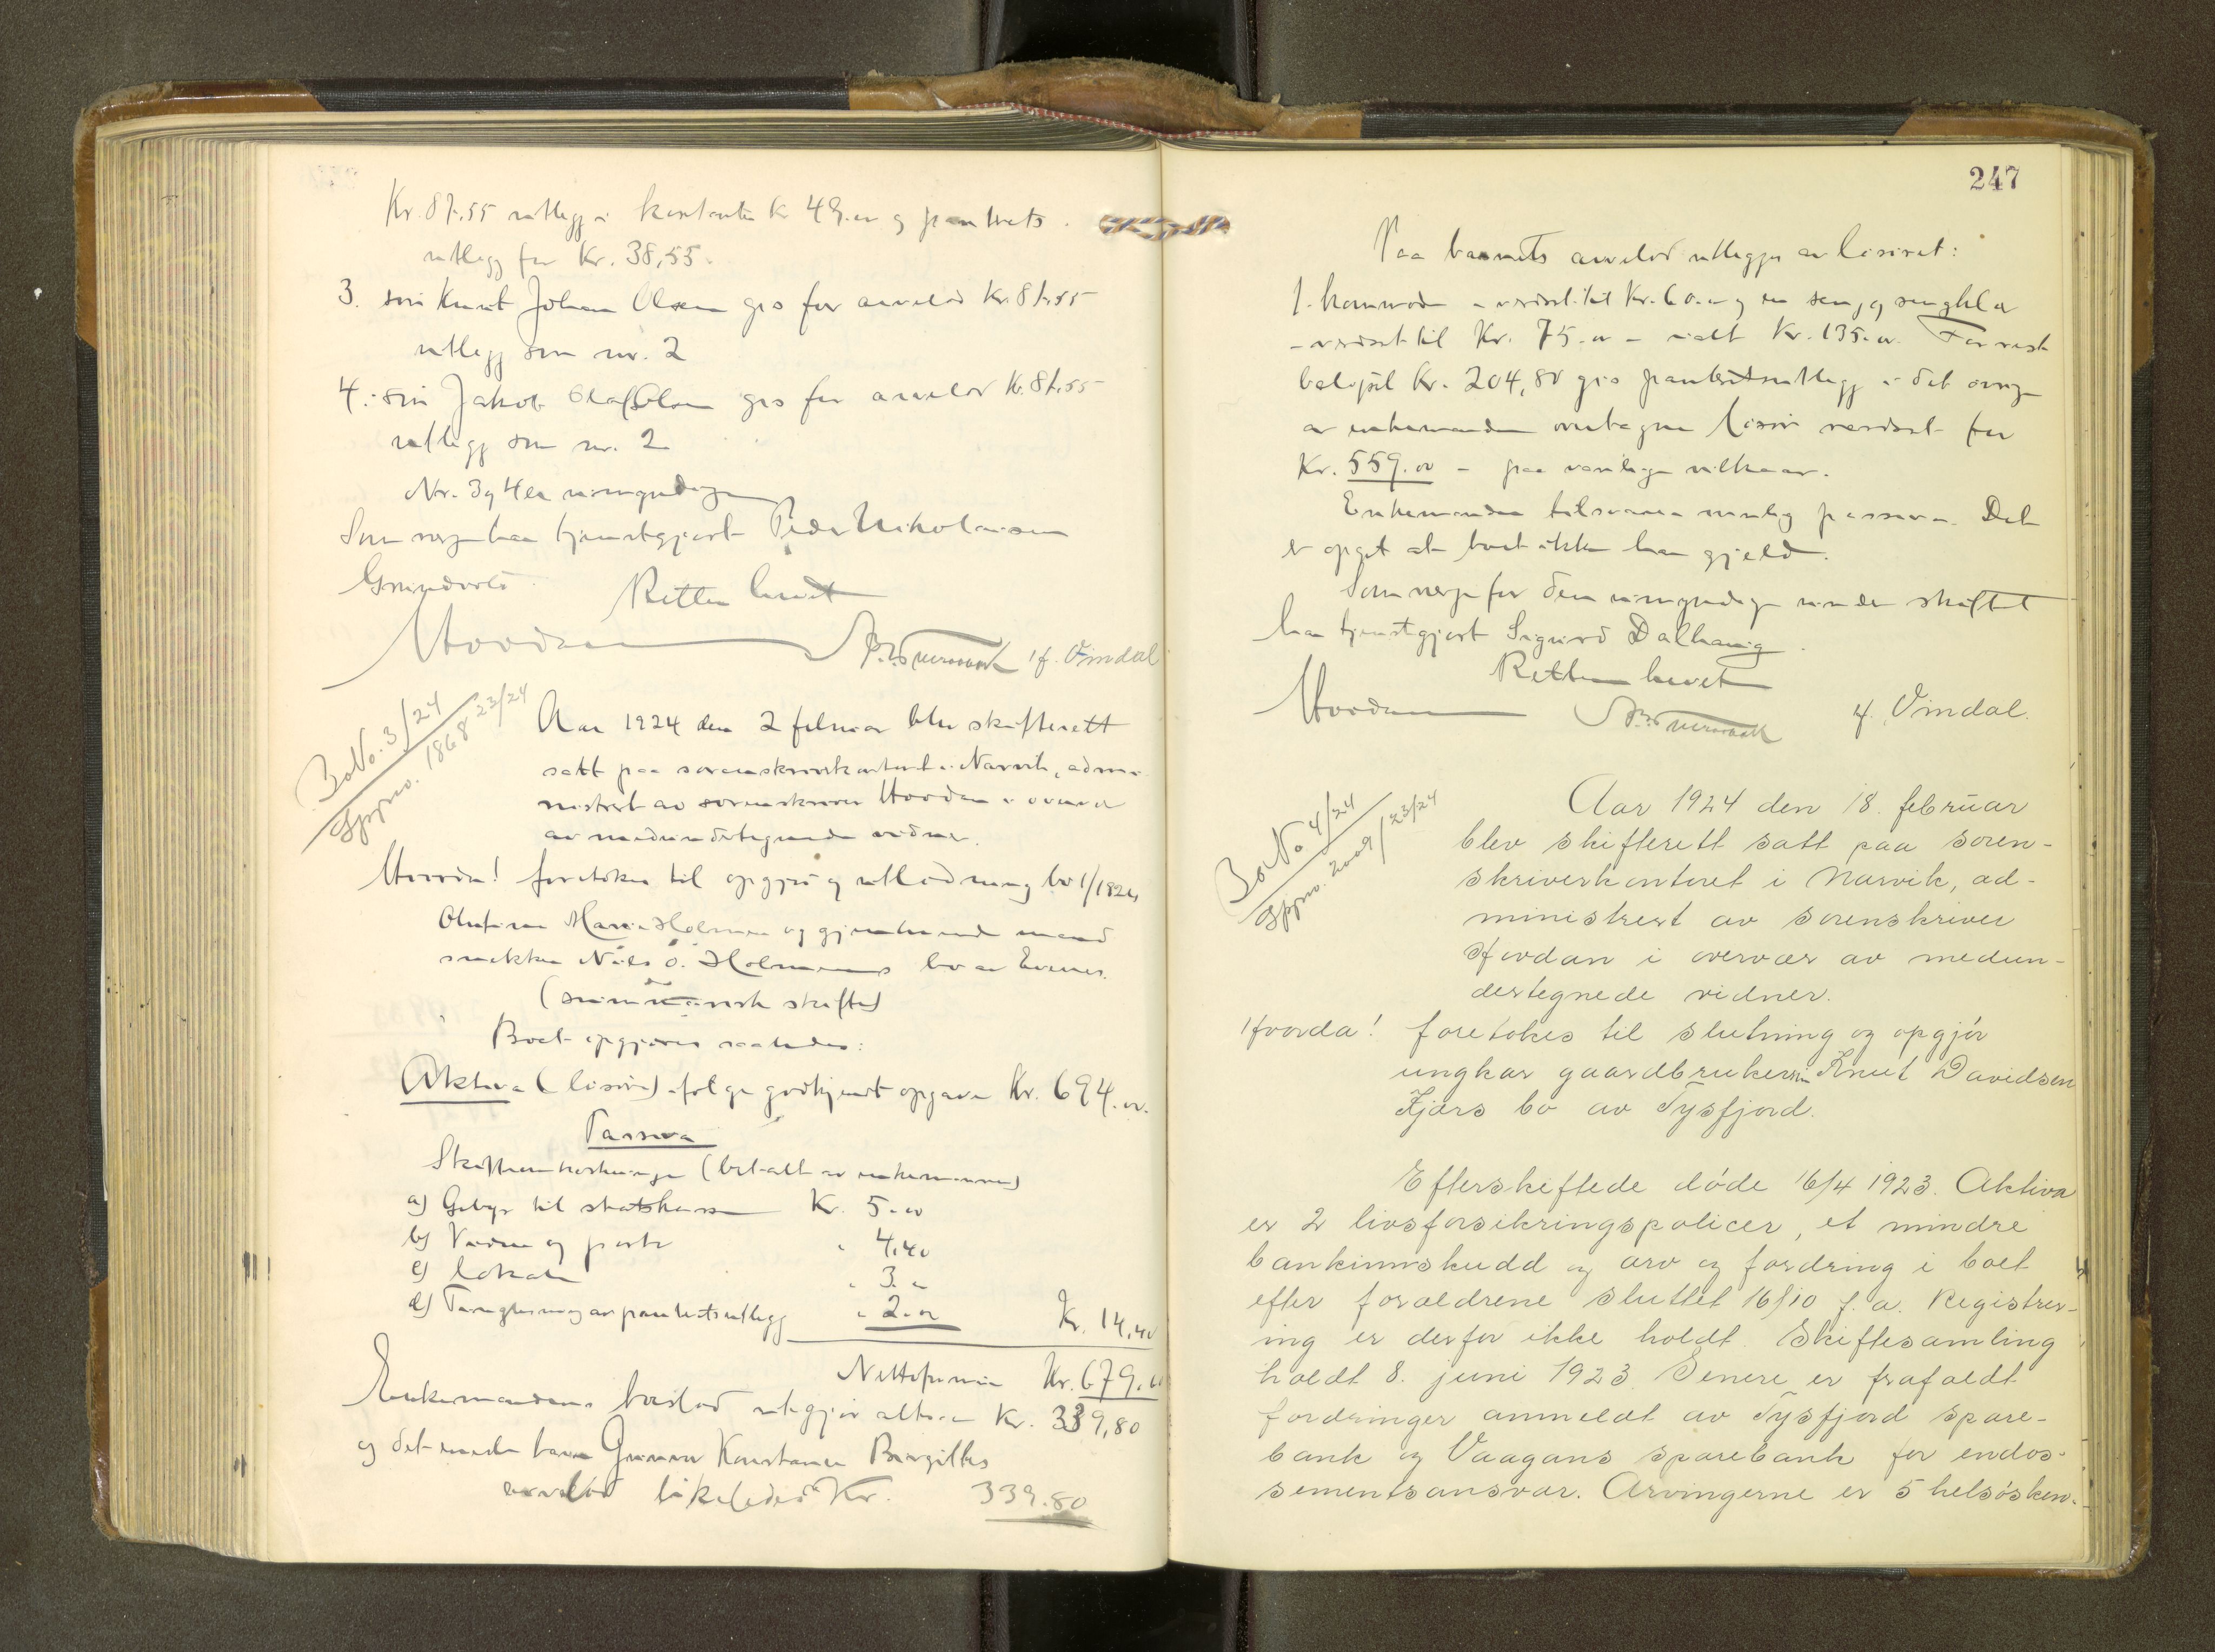 Kr. 87.55 utlegg i kontanter kr 49.00 og panterets
utlegg for Kr. 38,55.
3. søn Knut Johan Olsen gis for arvelod Kr. 87.55
utlegg som nr. 2
4. søn Jakob Olaf Olsen gis for arvelod Kr. 87.55
utlegg som nr. 2
Nr. 3 og 4 er umyndige
Som verge har tjenstgjort Peder Nikolaisen
Retten hevet
Hordan
1f. Vindal
Bo No. 3/24
Jppno. 1868 23/24
Aar 1924 den 2 februar blev skifterett
satt paa sorenskriverkontoret i Narvik, admi-
nistrert av sorenskriver Hordan i overvær
av medundertegnede vidner.
Hvorda! foretokes til opgjør og utlodning bo 1/1924
Olufine Marie Holmen og gjenlevende mand
snekker Nils O. Holmens bo av Evenes.
(summarisk skifte)
Boet opgjøres saaledes:
Aktiva (løsøre) ifølge godkjent opgave Kr. 694.00.
Passiva
Skifteomkostninger (betalt av enkemannen)
a) Gebyr til statskassen Kr. 5.00
b) Vidner og porto " 4.40
c) lokale " 3.00
d) Tinglysning av panteretsutlegg " 2.00 Kr. 14,40
Nettoformue Kr. 679.60
Enkemandens boslod utgjør altsaa Kr. 339,80
og det eneste barn Gunvor Konstanse Birgittes
arvelod likeledes Kr. 339.80
247
Paa barnets arvelod utlegges av løsøret:
1 kommode - verdsat til Kr. 60.00 og en seng og sengklær
- verdsat til Kr. 75.00 - ialt Kr. 135.00. For rest
beløpet Kr. 204,80 gis panteretsutlegg i det øvrige
av enkemanden overtagne løsøre verdsat for
Kr. 559.00 - paa vanlige vilkaar.
Enkemanden tilsvarer mulig passiva. Det
er opgit at boet ikke har gjeld.
Som verge for den umyndige under skiftet
har tjenstgjort Sigurd Dalhaug.
Retten hevet
Hordan
4. Vindal.
Bo No 4/24
Jppno. 2009/23/24
Aar 1924 den 18. februar
blev skifterett satt paa soren-
skriverkontoret i Narvik, ad-
ministrert av sorenskriver
Hordan i overvær av medun-
dertegnede vidner.
Hvorda! foretokes til slutning og opgjør
ungkar gaardbruker Knut Davidsen
Kjærs bo av Tysfjord.
Efterskiftede døde 16/4 1923. Aktiva
er 2 livsforsikringspolicer, et mindre
bankinnskudd og arv og fordring i boet
efter forældrene sluttet 16/10 f. a. Registrer-
ing er derfor ikke holdt. Skiftesamling
holdt 8. juni 1923. Senere er frafaldt
fordringer anmeldt av Tysfjord spare-
bank og Vaagans sparebank for endos-
sementsansvar. Arvingerne er 5 helsøsken.